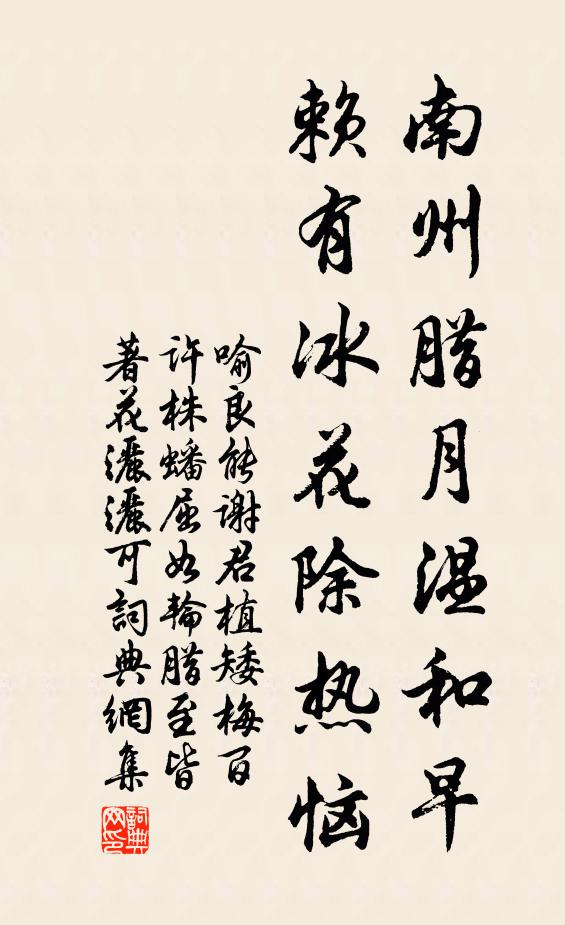 南州腊月温和早
赖有冰花除热恼
喻良能谢君植矮梅百
许株蟠屈如轮腊至皆
著花灑灑可詞典網集
詞典網印